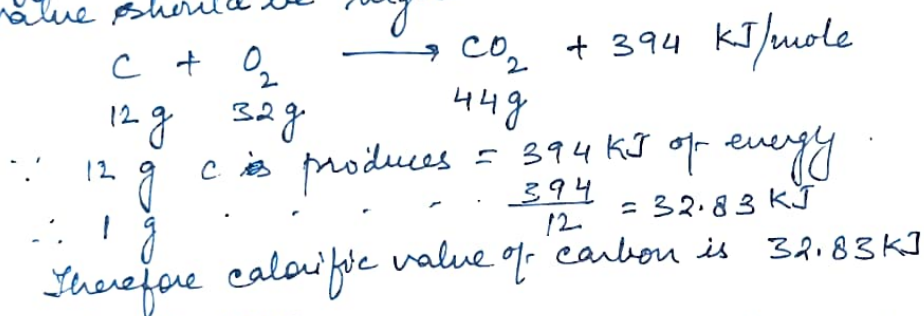 value should be
C + O₂ ⟶ CO₂ + 394 KJ/mole
12 g 32g 44g
∵ 12 g C produces = 394 KJ of energy.
∴ 1 g . . . . 394/12 = 32.83 KJ
Therefore calorific value of carbon is 32.83 KJ